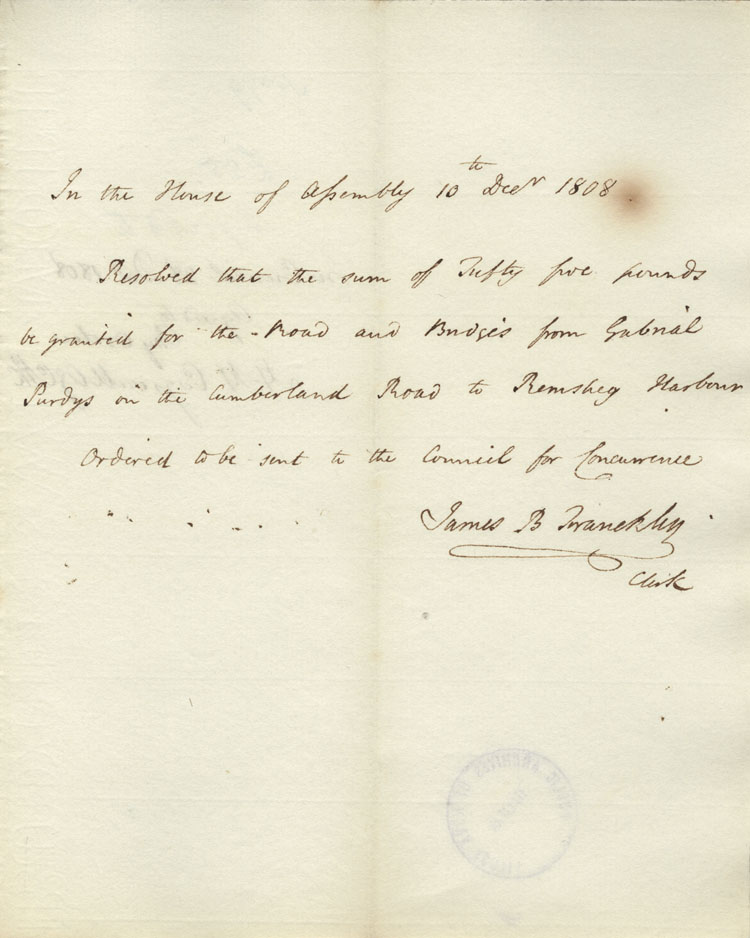 In the House of Assembly 10th Decr 1808
Resolved that the sum of Fifty five pounds
be granted for the Road and Bridges from Gabrial
Purdys on the Cumberland Road to Remsheg Harbour
Ordered to be sent to the Council for Concurrence
James B Franckling
Clerk